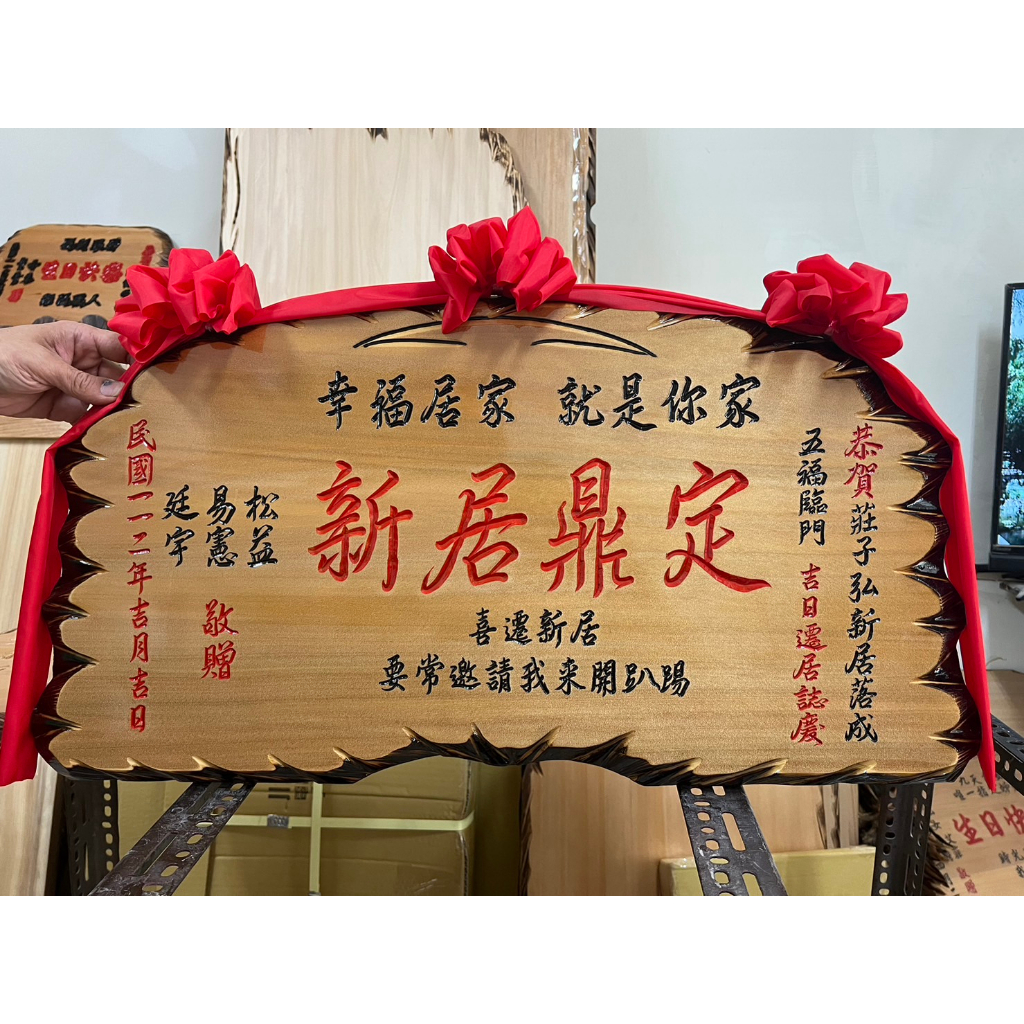 幸福居家 就是你家
恭賀莊子弘新居落成
五福臨門 吉日遷居誌慶
新居鼎定
喜遷新居
要常邀請我来開趴踢
松益
易憲
廷宇
敬贈
民國一一二年吉月吉日
生日快